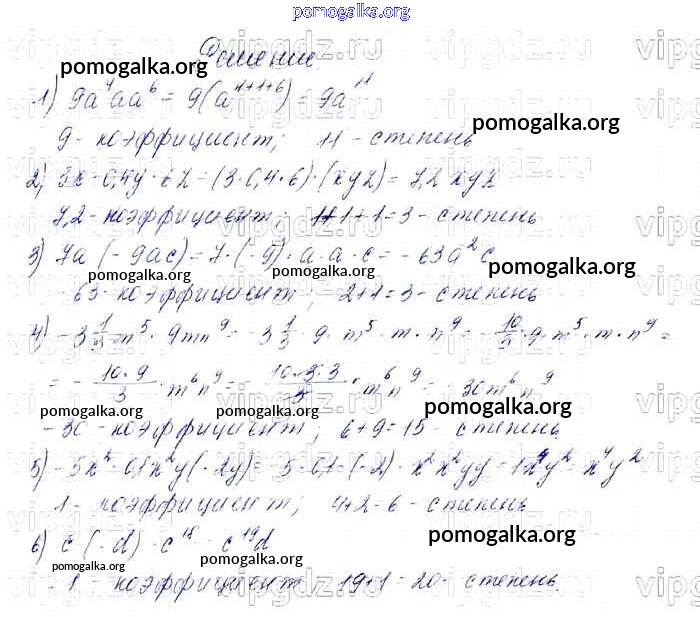 pomogalka.org
Решение.
pomogalka.org
1) 9a⁴aa⁶ = 9(a⁴⁺¹⁺⁶) = 9a¹¹
9 - коэффициент; 11 - степень
pomogalka.org
2) 3x · 0,4y · 6z = (3·0,4·6)·(xyz) = 7,2 xyz
7,2 - коэффициент; 1+1+1=3 - степень
3) 7a (-9ac) = 7·(-9)·a·a·c = -63a²c
pomogalka.org pomogalka.org pomogalka.org
-63 - коэффициент; 2+1=3 - степень
4) -3 1/3 m⁵ · 9mn⁹ = -3 1/3 · 9 · m⁵ · m · n⁹ = -10/3 · 9 · m⁵ · m · n⁹ =
= - 10·9/3 · m⁶n⁹ = - 10·3·3/3 · m⁶n⁹ = -30m⁶n⁹
pomogalka.org pomogalka.org pomogalka.org
-30 - коэффициент; 6+9=15 - степень.
5) -5x² · 0,1x²y (-2y) = -5·0,1·(-2)·x²x²yy = 1x⁴y² = x⁴y²
1 - коэффициент; 4+2=6 - степень
pomogalka.org
6) c (-d) · c¹⁸ = -c¹⁹d
pomogalka.org pomogalka.org
-1 - коэффициент 19+1=20 - степень.